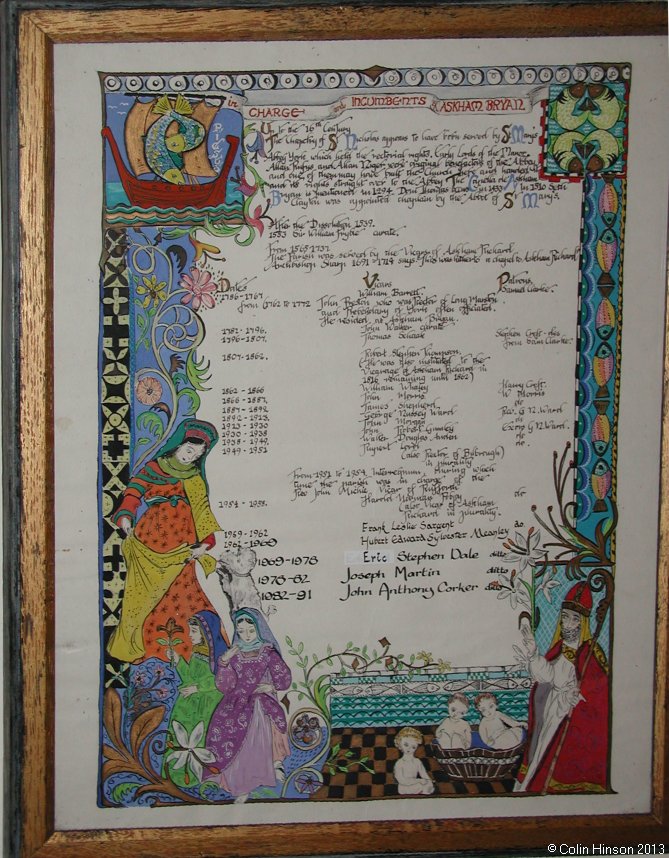 in CHARGE and INCUMBENTS ASKHAM BRYAN
PISCIS
Up to the 16th Century
The Chapelry of St Nicholas appears to have been served by St Mary's
Abbey York which held the rectorial rights. Early Lords of the Manor
Allan and Allan were original benefactors of the Abbey
and one of them may have built the Church here and handed it
and its rights straight over to the Abbey. The Chapel of Askham
Bryan is mentioned in 1294. Dom Thomas in 1439. In 1510 Seth
Clayton was appointed chaplain by the Abbot of St Mary's.
After the Dissolution 1539.
1583 Sir William curate.
From 1565-1737.
The Parish was served by the Vicars of Askham Richard.
Archbishop Sharp 1691-1714 says this was hitherto a chapel to Askham Richard
Dates Vicars Patrons
William Barrett. Samuel Clarke.
1786-1767
from 1762 to 1772 John who was Rector of Long Marston
and Prebendary of York often officiated.
He resided at Askham Bryan.
1782-1796. John Walker curate
1796-1807. Thomas Stephen Croft - des
from Sam Clarke.
1807-1862. Robert Stephen Thompson.
(He was also instituted to the
Vicarage of Askham Richard in
1816 remaining until 1862)
1862-1866 William Whaley Harry Croft.
1866-1887. John Morris W Morris
1887-1892. James Shepherd. do
1892-1923. George Nudsey Ward Rev. G N. Ward
1923-1930 John Morgan do
1930-1938 John Robert Exors G N. Ward
1938-1949. Walter Douglas do
1949-1951 Rupert Lord do.
(also Rector of Bilbrough)
in plurality
From 1951 to 1954 Interregnum during which
time the parish was in charge of the
Rev John Vicar of Rufforth
1954-1958. Harold Norman do
(also Vicar of Askham
Richard in plurality.
1959-1962 Frank Leslie Sargent
1962-1969 Hubert Edward Sylvester Meanley do
1969-1978 Eric Stephen Dale ditto
1978-82 Joseph Martin ditto
1982-91 John Anthony Corker ditto
© Colin Hinson 2013